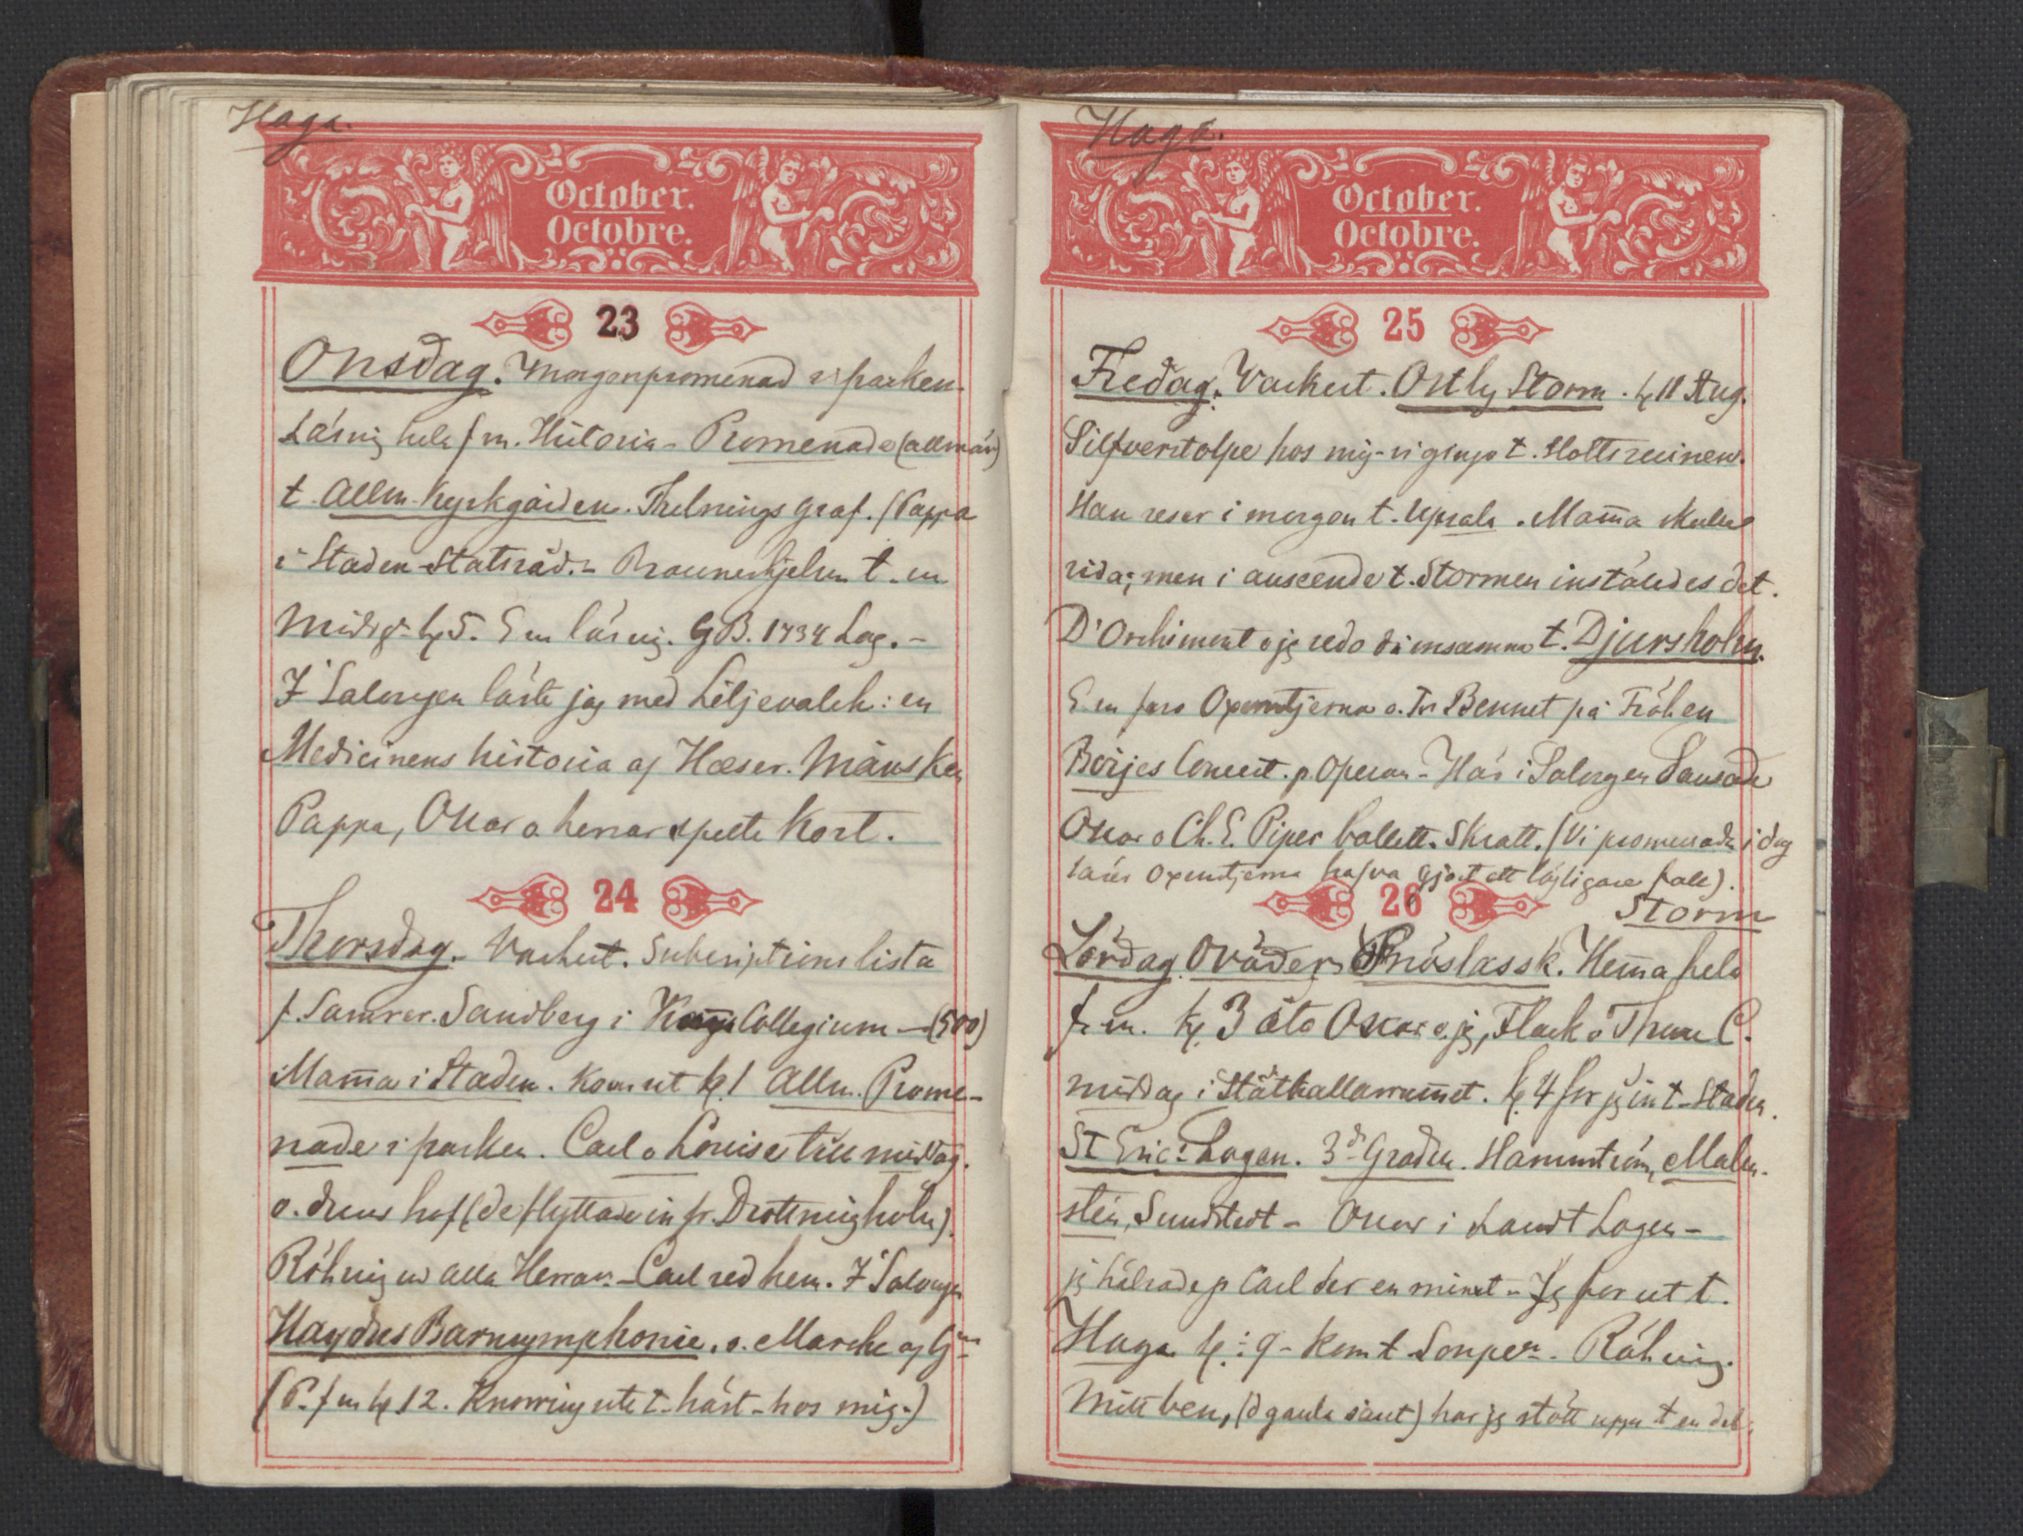 Haga.
October.
Octobre.
23
Onsdag. Morgonpromenad i parken.
Läsnig hela f m. Historia - Promenade (allmän)
t. Allm Kyrkgården. Thelnings graf. (Pappa
i Staden Statsråd. - Braunerhjelm t. en
Middg kl 5. E m läsnig. G B. 1734 Lag. -
I Salongen läste jag med Liljevalch: en
Medicinens historia af Hæser. Månsken
Pappa, Oscar o herrar spelte Kort.
24
Thorsdag. Vackert. Subscriptions lista
f. Samver. Sandberg i Collegium - (500)
Mam̄a i Staden. Kom ut kl. 1 Allm. Prome-
nade i parken. Carl o Louise till middag.
o. deras hof (de flyttade in fr. Drottningholm).
Röhnig en alla Herrar. - Carl red hem. I Salongen
Haydns Barnsymphonie. o. Marche af Gm
(P. f m kl 12. Knorring ute t. häst - hos mig.)
Haga.
October.
Octobre.
25
Fredag. Vackert. Ostlig Storm. kl 11 Aug.
Silfverstolpe hos mig - vi gingo t. Slottsruinen.
Han reser i morgon t. Upsala. Mam̄a skulle
rida; men i anseende t. Stormen instäldes det.
D'Orchimont o jg redo då ensamma t. Djursholm.
E m foro Oxenstjerna o. Fr Bennet på Fröken
Börjes Concert. p Operan - Här i Salongen dansade
Oscar o Ch. E. Piper ballett. Skratt. (Vi promenade i dag
Oxenstjerna hafva gjort ett löjligare fall).
26
Storm
Lördag. Oväder. Snöslassk. Hem̄a hela
f. m. kl. 3 åto Oscar o. jg, Flach o Thure C.
middag i Ståthallarrum̄et. kl. 4 for jg in t. Staden.
St Erics Logen. 3de Graden. Hammström, Malm-
stén, Sundstedt - Oscar i Landt Logen -
jg hälsade p Carl der en minut - Jg for ut t.
Haga kl. ½ 9 - kom t Soupen. Röhnig.
Mitt ben, (d gamla såret) har jg stött upp t en del.